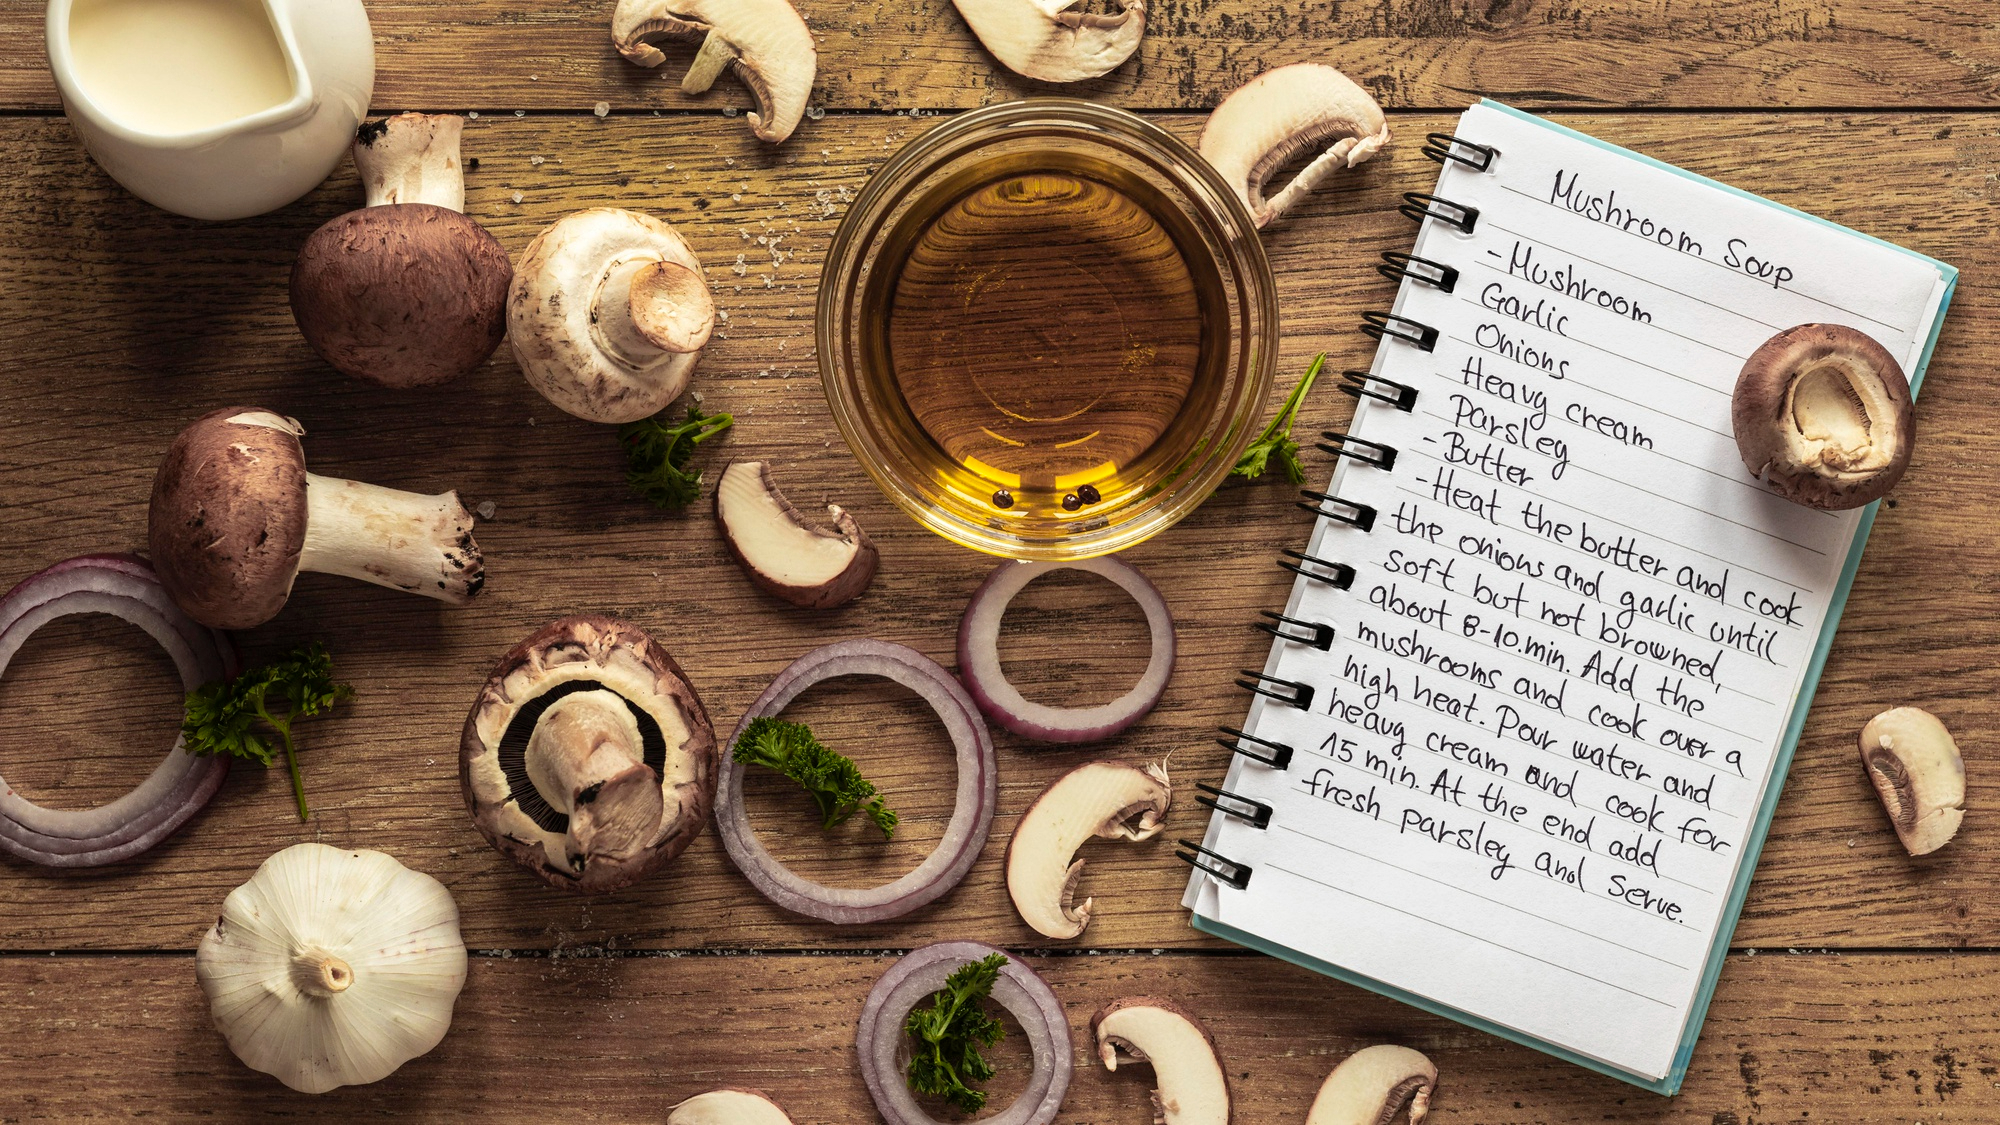 Mushroom Soup
-Mushroom
Garlic
Onions
Heavy cream
Parsley
-Butter
-Heat the butter and cook
the onions and garlic until
soft but not browned,
about 8-10.min. Add the
mushrooms and cook over a
high heat. Pour water and
heavy cream and cook for
15 min. At the end add
fresh parsley and serve.